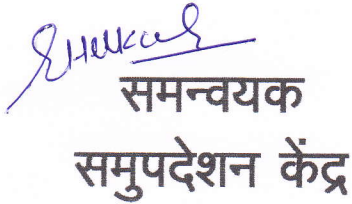 समन्वयक
समुपदेशन केंद्र